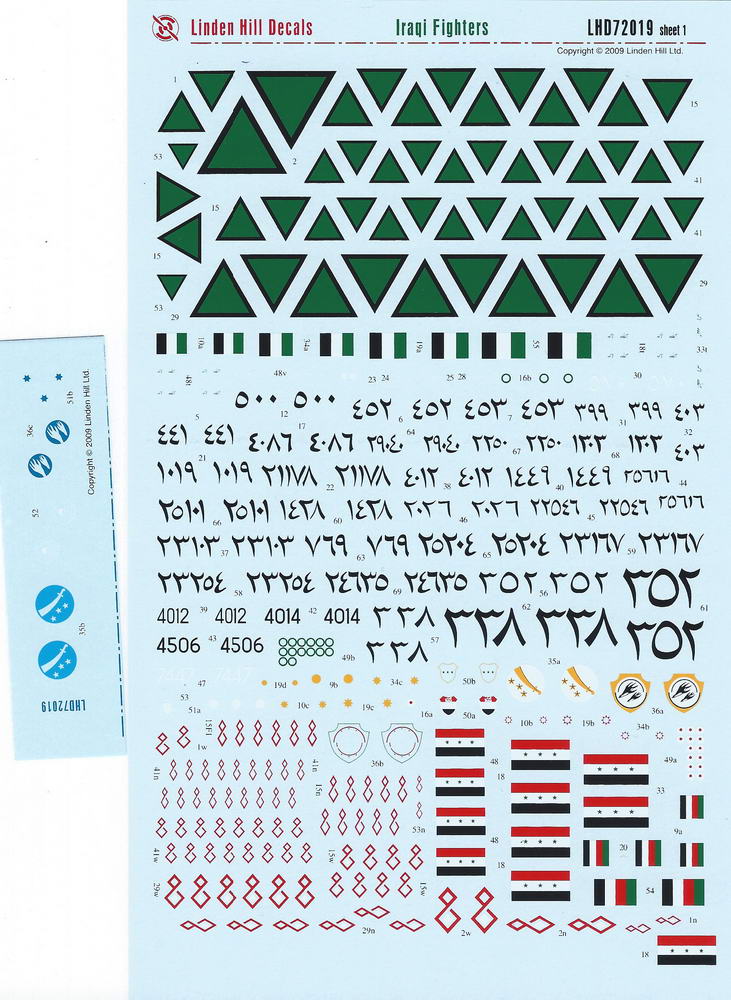 Linden Hill Decals Iraqi Fighters LHD72019 sheet 1
Copyright © 2009 Linden Hill Ltd.
1
15
53
2
41
15
41
15
53
29
29
10a 34a 19a 55 18t 33t
48t 48v 23 24 25 28 16b 30
٥٠٠ ٥٠٠ ٤٥٢ ٤٥٢ ٤٥٣ ٤٥٣ ٣٩٩ ٣٩٩ ٤٠٣
5 12 6 7 31 32
17 64 67 68
٤٤١ ٤٤١ ٤٠٨٦ ٤٠٨٦ ٢٩٠٤٠ ٢٩٠٤٠ ٢٢٥٠ ٢٢٥٠ ١٣٠٣ ١٣٠٣ ٤٠٣
21
١٠١٩ ١٠١٩ ٢١١٧٨ ٢١١٧٨ ٤٠١٢ ٤٠١٢ ١٤٤٩ ١٤٤٩ ٢٥٦١٦
22 38 40 44
٢٥١٠١ ٢٥١٠١ ١٤٢٨ ١٤٢٨ ٢٠٢٦ ٢٠٢٦ ٢٢٥٤٦ ٢٢٥٤٦ ٢٥٦١٦
66 60 46 45
٢٣١٠٣ ٢٣١٠٣ ٧٦٩ ٧٦٩ ٢٥٢٠٤ ٢٥٢٠٤ ٢٣١٦٧ ٢٣١٦٧
37 63 65 59
٢٣٢٥٤ ٢٣٢٥٤ ٢٤٦٣٥ ٢٤٦٣٥ ٢٥٢ ٢٥٢ ٣٥٢
58 69 56
4012 39 4012 4014 42 4014 ٣٣٨ ٣٣٨ 62 ٣٣٨ 61
4506 43 4506 49b ٣٣٨ 57 ٣٥٢
7447 7447
47 19d 9b 34c 50b 35a
53 51a 10c 19c 16a 50a 36a
10b 19b 34b
1w 15F1 36b 48 49a
41n 41n 15n 18 33
53n 9a
41w 15w 48 20
29w 15w 18 54
29n 2w 2n 1n
18
51b
36c
52
35b
Copyright © 2009 Linden Hill Ltd.
LHD72019